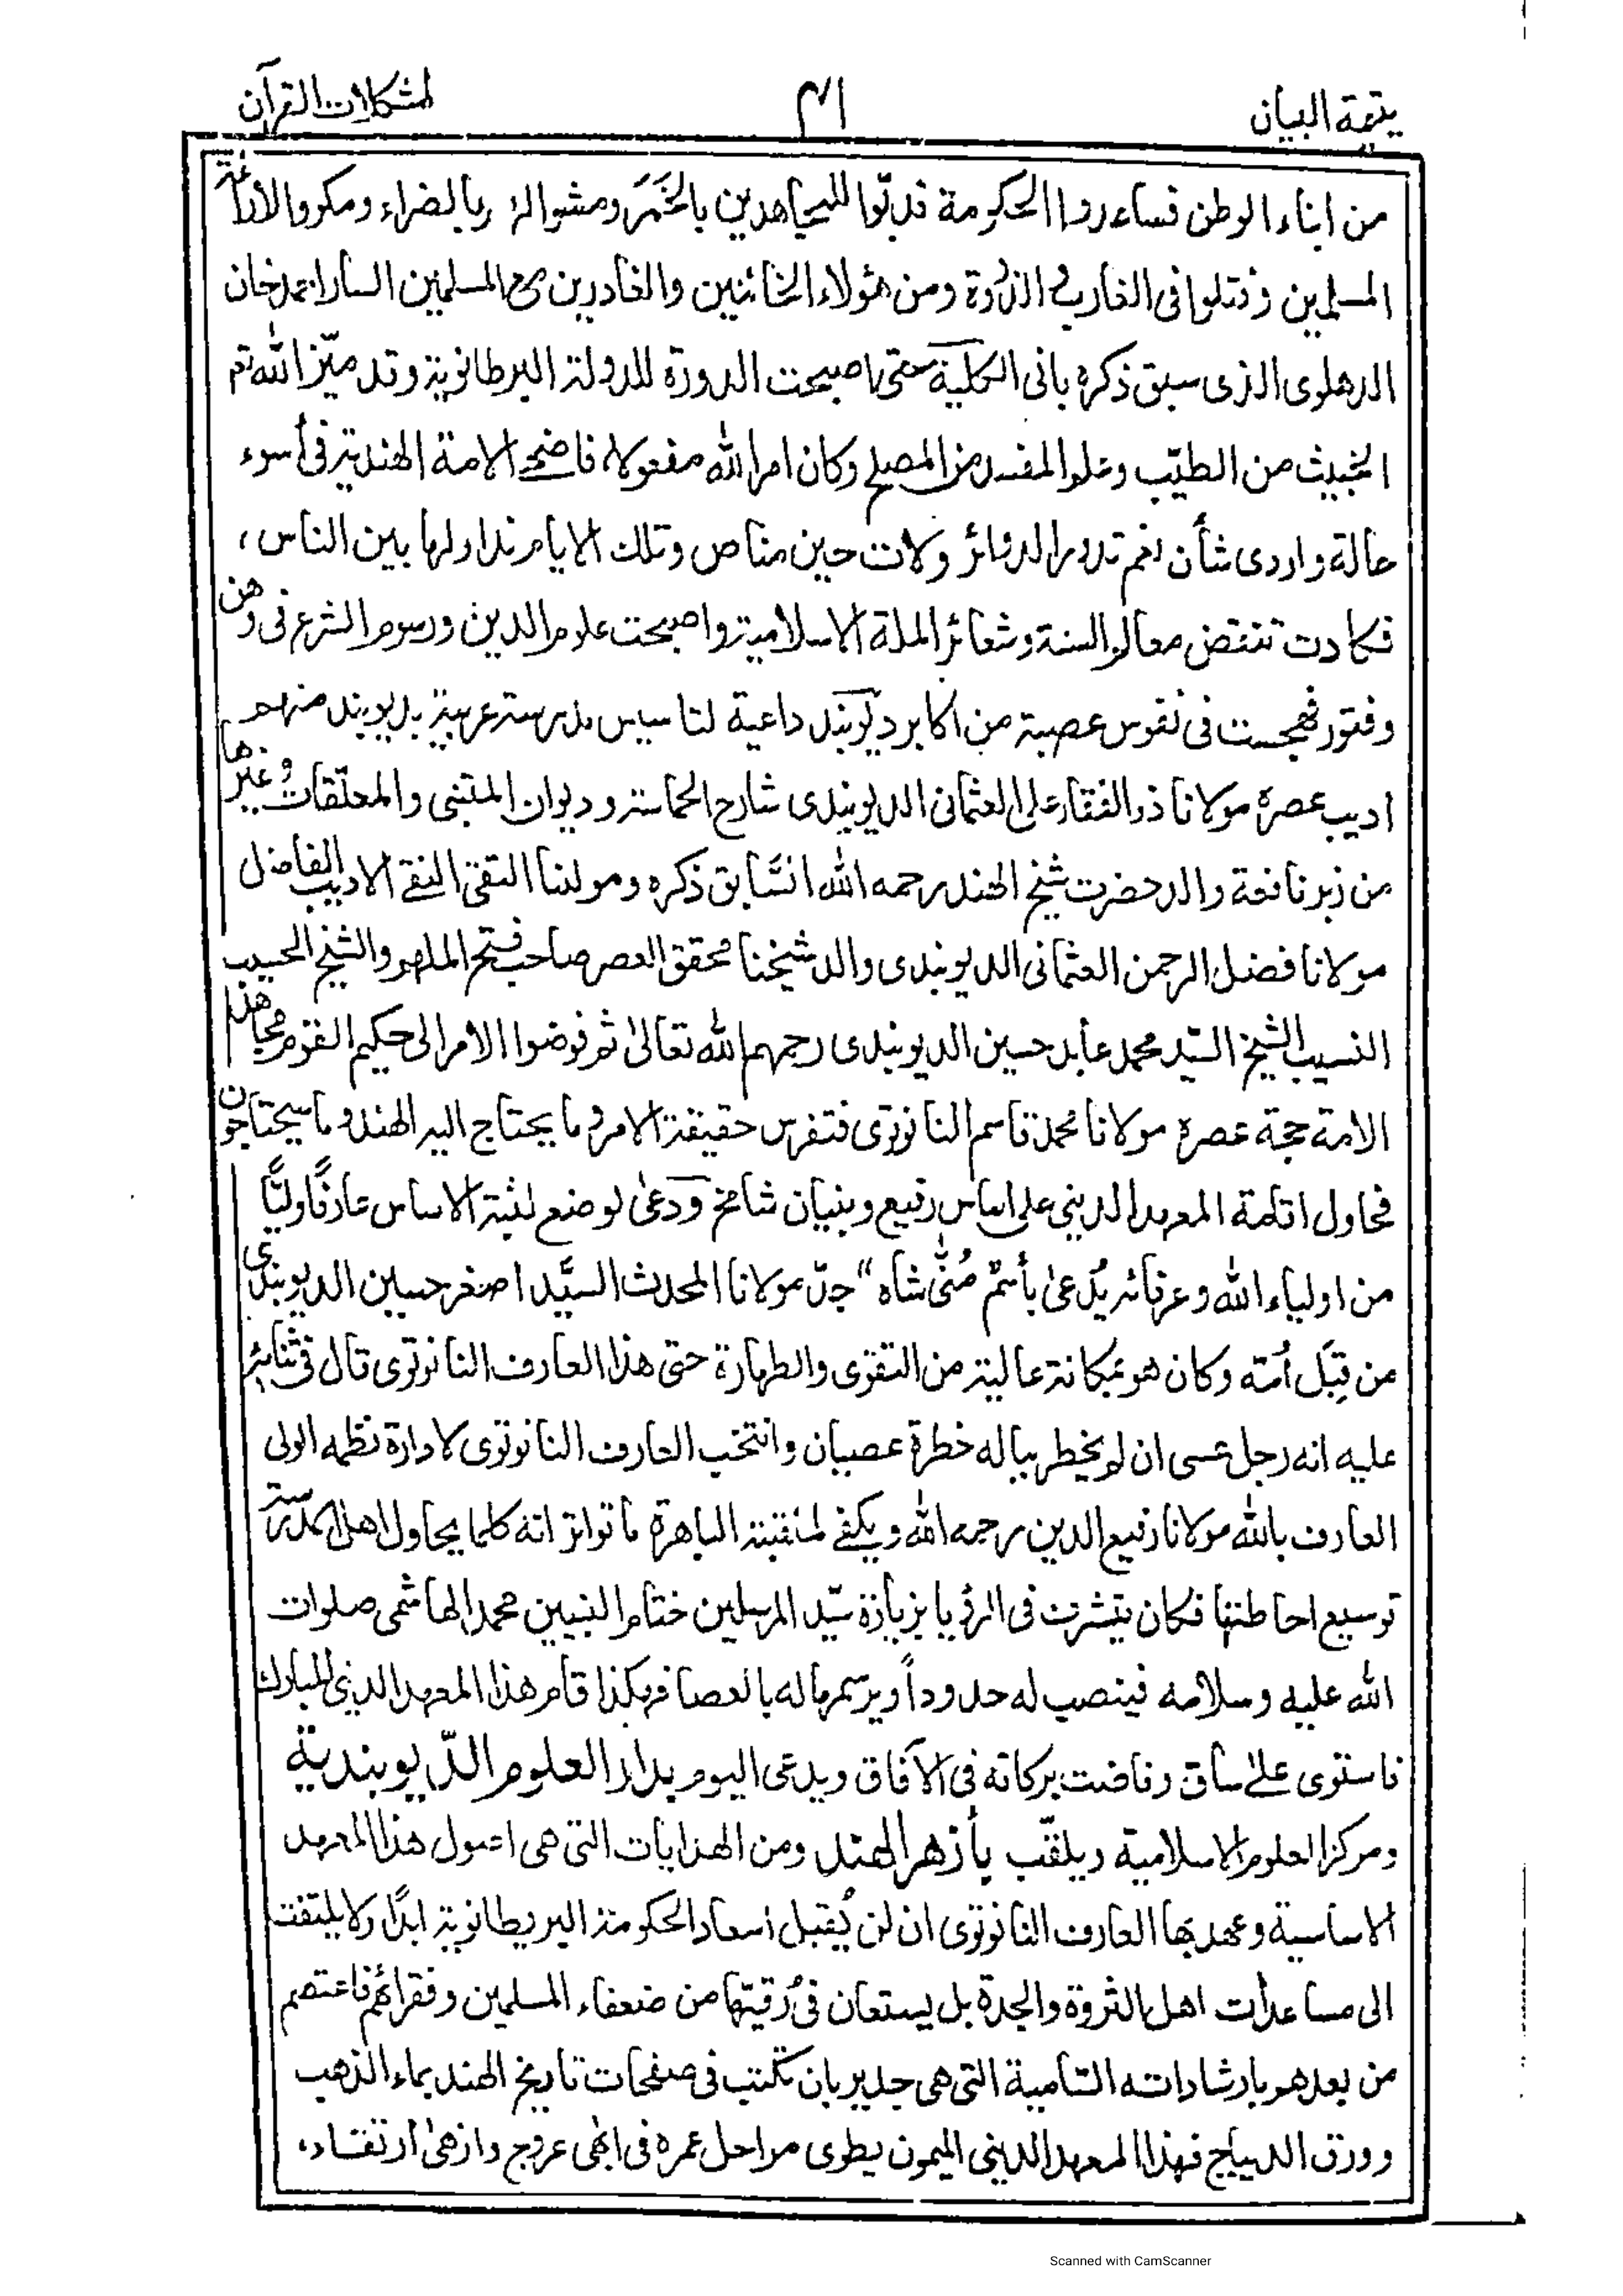 يتيمة البيان
٣١
لمشكلات القرآن
من ابناء الوطن فساعدوا الحكومة فدبّوا للمجاهدين بالخَمَر ومشوا لهم بالضراء ومكروا لإذاعة
المسلمين وفتلوا فى الغارب والذروة ومن هؤلاء الخائنين والغادرين مع المسلمين السار احمد خان
الدهلوى الذى سبق ذكره بانى الكلية حتى اصبحت الدورة للدولة البرطانوية وقد ميّز الله ثم
الخبيث من الطيّب وعلم المفسد من المصلح وكان امر الله مفعولا، فاضحى الامة الهندية فى أسوء
حالة واردى شأن نعم تدور الدوائر ولات حين مناص وتلك الايام نداولها بين الناس،
فكادت تنتقض معالم السنة وشعائر الملة الاسلامية واصبحت علوم الدين ورسوم الشرع فى وهن
وفتور فهجست فى نفوس عصبة من اكابر ديوبند داعية لتاسيس مدرسة عربية بديوبند منهم
اديب عصره مولانا ذو الفقار على العثمانى الديوبندى شارح الحماسة وديوان المتنبى والمعلّقات وغيرها
من زبر نافعة والد حضرت شيخ الهند رحمه الله السّابق ذكره ومولٰنا التقى النقى الاديب الفاضل
مولانا فضل الرحمن العثمانى الديوبندى والد شيخنا محقق العصر صاحب فتح الملهم والشيخ الحسيب
النسيب الشيخ السيّد محمد عابد حسين الديوبندى رحمهم الله تعالىٰ ثم فوضوا الامر الى حكيم القوم مجاهد
الامة حجة عصره مولانا محمد قاسم النانوتوى فتفرس حقيقة الامر وما يحتاج اليه الهند وما سيحتاجون
فحاول اقامة المعهد الدينى على اساس رفيع وبنيان شامخ ودعىٰ لوضع لبنة الاساس عارفًا وليًّا
من اولياء الله وعرفائه يُدعىٰ بأسم مُنّى شاه“ جدّ مولانا المحدث السيَّد اصغر حسين الديوبندى
من قِبَل أمّه وكان هو بمكانة عالية من التقوى والطهارة حتى هذا العارف النانوتوى قال فى ثنائه
عليه انه رجل عسى ان لم يخطر بباله خطرة عصيان وانتخب العارف النانوتوى لادارة نظمه الولى
العارف بالله مولانا رفيع الدين رحمه الله ويكفى لمنقبته الباهرة ما تواتر انه كلما يحاول اهل المدرسة
توسيع احاطتها فكان يتشرف فى الرؤيا بزيارة سيّد المرسلين ختام النبيين محمد الهاشمى صلوات
الله عليه وسلامه فينصب له حدوداً ويرسمها له بالعصا فهكذا قام هذا المعهد الدينى المبارك
فاستوى علىٰ ساق وفاضت بركاته فى الآفاق ويدعى اليوم بدار العلوم الدّيوبندية
ومركز العلوم الاسلامية ويلقّب بأزهر الهند ومن الهدايات التى هى اصول هذا المعهد
الاساسية وعهد بها العارف النانوتوى ان لن يُقبل اسعاد الحكومة البريطانوية ابدًا ولا يلتفت
الى مساعدات اهل الثروة والجدة بل يستعان فى رُقيّها من ضعفاء المسلمين وفقرائهم فاعتصم
من بعدهم بارشاداته السّامية التى هى جدير بان تكتب فى صفحات تاريخ الهند بماء الذهب
وورق الديباج فهذا المعهد الدينى الميمون يطوى مراحل عمره فى ابهٰى عروج وازهىٰ ارتقاء،
Scanned with CamScanner